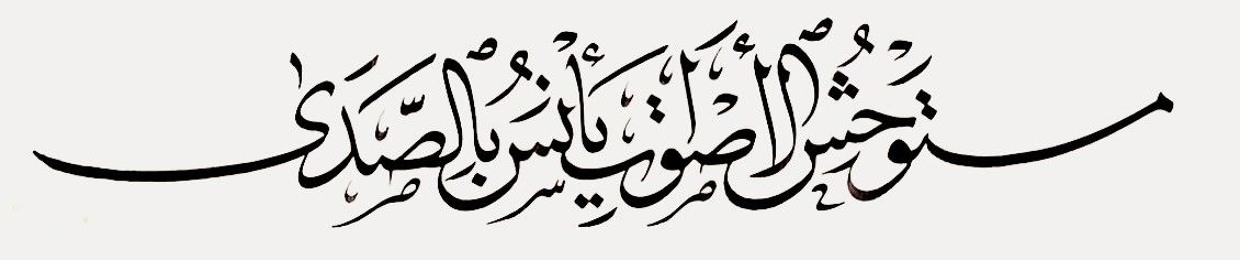 مستوحشُ الأصواتِ يأنسُ بالصَّدَى